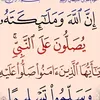 إِنَّ ٱللَّهَ وَمَلَـٰٓئِكَتَهُۥ
يُصَلُّونَ عَلَى ٱلنَّبِىِّ
يَـٰٓأَيُّهَا ٱلَّذِينَ ءَامَنُوا۟ صَلُّوا۟ عَلَيْهِ
وَسَلِّمُوا۟ تَسْلِيمًا